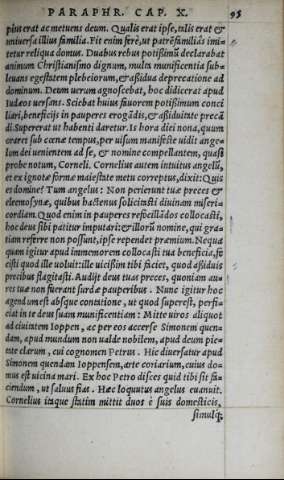 PARAPHR. CAP. X. 95
pius erat ac metuens deum. Qualis erat ipse, talis erat &
uniuersa illius familia. Fit enim ferè, ut patrēsfamiliâs imi-
tetur reliqua domus. Duabus rebus potissimū declarabat
animum Christianismo dignum, multa munificentia sub-
leuans egestatem plebeiorum, & aßidua deprecatione ad
dominum. Deum uerum agnoscebat, hoc didicerat apud
Iudæos uersans. Sciebat huius fauorem potißimum conci
liari, beneficijs in pauperes erogādis, & aßiduitate precā
di. Supererat ut habenti daretur. Is hora diei nona, quum
oraret sub cœnæ tempus, per uisum manifeste uidit ange-
lum dei uenientem ad se, & nomine compellantem, quasi
probe notum, Corneli. Cornelius autem intuitus angelū,
et ex ignotæ formæ maiestate metu correptus, dixit: Quis
es domine? Tum angelus: Non perierunt tuæ preces &
eleemosynæ, quibus hactenus solicitasti diuinam miseri-
cordiam. Quod enim in pauperes refocillādos collocasti,
hoc deus sibi patitur imputari: & illorū nomine, qui gra-
tiam referre non possunt, ipse rependet præmium. Nequa
quam igitur apud immemorem collocasti tua beneficia, fe
cisti quod ille uoluit: ille uicißim tibi faciet, quod aßiduis
precibus flagitasti. Audijt deus tuas preces, quoniam au-
res tuæ non fuerant surdæ pauperibus. Nunc igitur hoc
agendum est absque contione, ut quod superest, perfi-
ciat in te deus suam munificentiam: Mitte uiros aliquot
ad ciuitatem Ioppen, ac per eos accerse Simonem quen-
dam, apud mundum non ualde nobilem, apud deum pie-
tate clarum, cui cognomen Petrus. Hic diuersatur apud
Simonem quendam Ioppensem, arte coriarium, cuius do-
mus est uicina mari. Ex hoc Petro disces quid tibi sit fa-
ciendum, ut saluus fias. Hæc loquutus angelus euanuit.
Cornelius itaque statim mittit duos è suis domesticis,
simulq́;